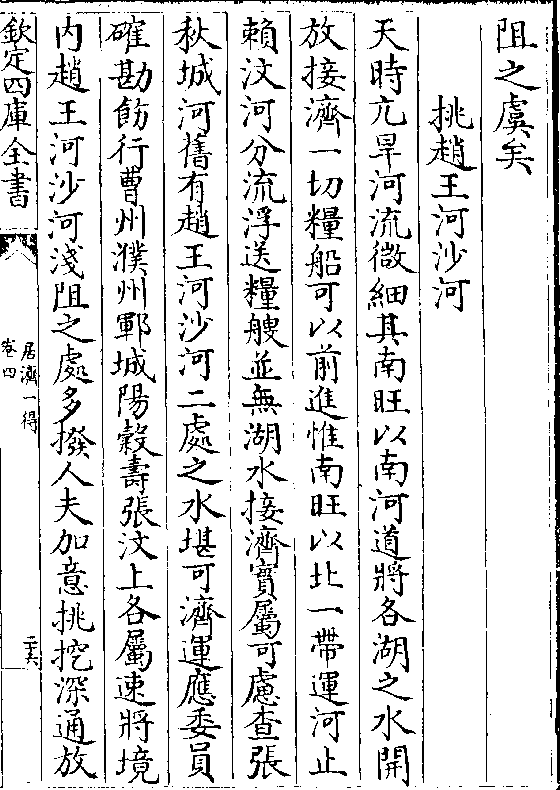 阻之虞矣
挑趙王河沙河
天時亢旱河流微細其南旺以南河道將各湖之水開
放接濟一切糧船可以前進惟南旺以北一帶運河止
賴汶河分流浮送糧艘並無湖水接濟實屬可慮查張
秋城河舊有趙王河沙河二處之水堪可濟運應委員
確勘飭行曹州濮州鄆城陽榖壽張汶上各屬速將境
内趙王河沙河淺阻之處多撥人夫加意挑挖深通放
欽定四庫全書
居濟一得
卷四
二六